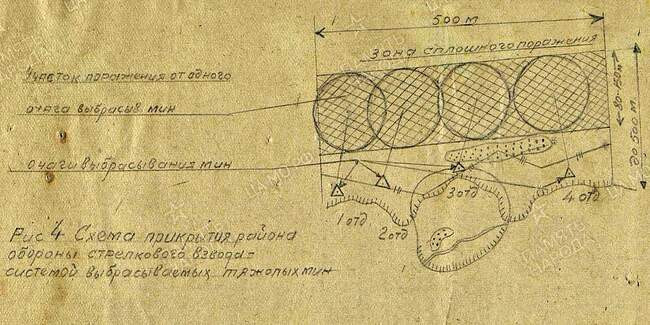 500 м
Зона сплошного поражения
Участок поражения от одного
очага выбрасыв мин
до 150 м
до 500 м.
очаги выбрасывания мин
1 отд
2 отд
3 отд
4 отд
Рис 4 Схема прикрытия района
обороны стрелкового взвода-
системой выбрасываемых тяжолых мин